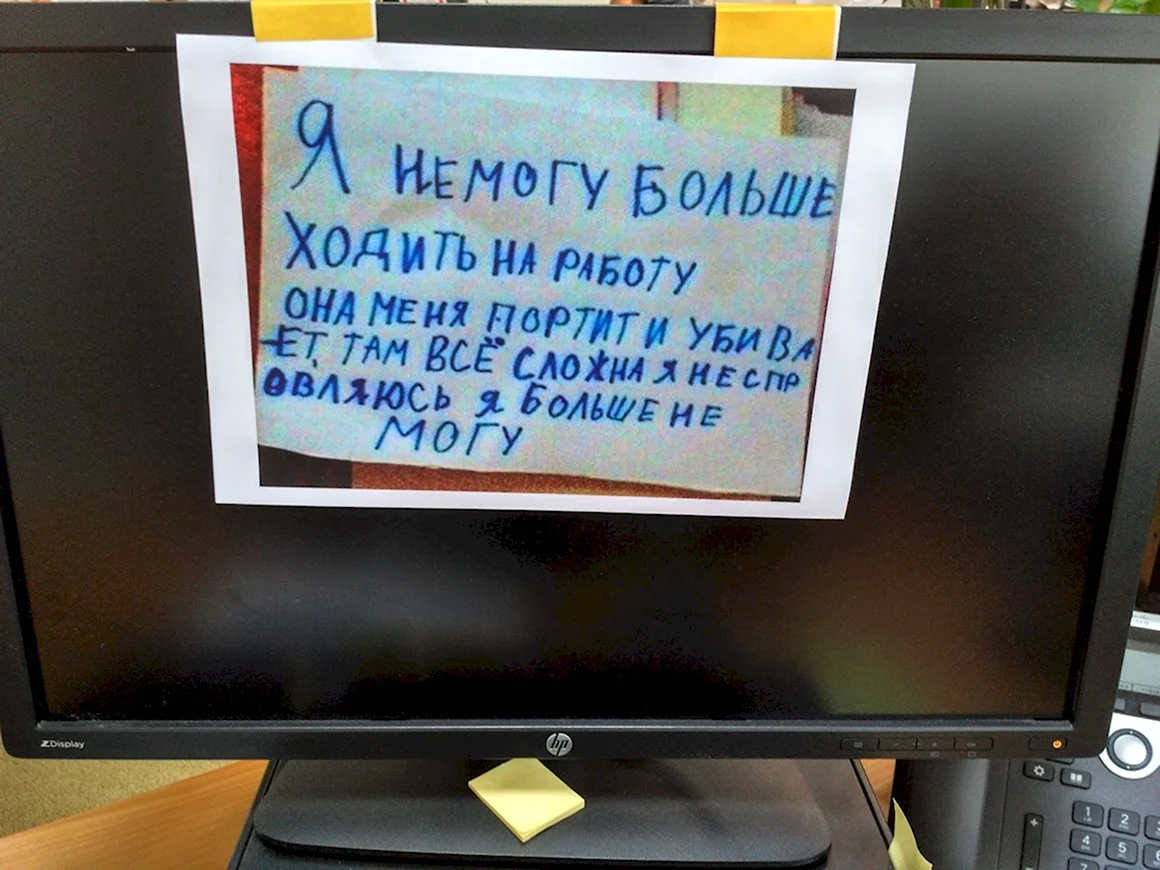 Я НЕМОГУ БОЛЬШЕ
ХОДИТЬ НА РАБОТУ
ОНА МЕНЯ ПОРТИТ И УБИВА
ЕТ, ТАМ ВСЁ СЛОЖНА Я НЕ СПР
ОВЛЯЮСЬ Я БОЛЬШЕ НЕ
МОГУ
ZDisplay
hp
1 2 3
4 5 6
7